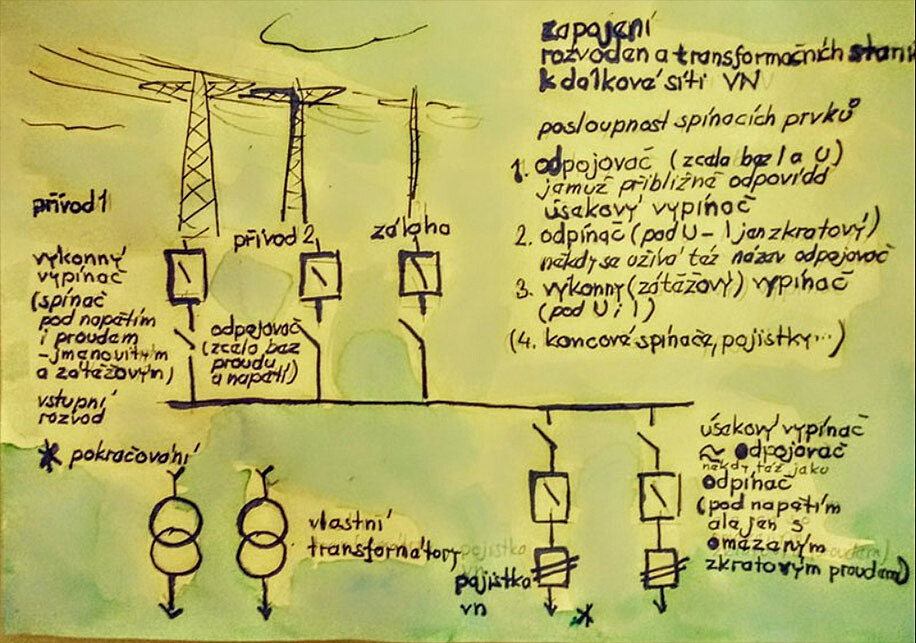 zapojení
rozvoden a transformačních stanic
k dálkové síti VN
posloupnost spínacích prvků
1. odpojovač (zcela bez I a U)
jemuž přibližně odpovídá
úsekový vypínač
2. odpínač (pod U - I jen zkratový)
někdy se užívá též název odpojovač
3. výkonný (zátěžový) vypínač
(pod U i I)
(4. koncové spínače, pojistky...)
přívod 1
přívod 2
záloha
výkonný
vypínač
(spínač
pod napětím
i proudem
- jmenovitým
a zátěžovým)
odpojovač
(zcela bez
proudu
a napětí)
vstupní
rozvod
* pokračování
vlastní
transformátory
pojistka
vn
pojistka
vn
*
úsekový vypínač
≈ odpojovač
někdy též jako
odpínač
(pod napětím
ale jen s
omezeným
zkratovým proudem)